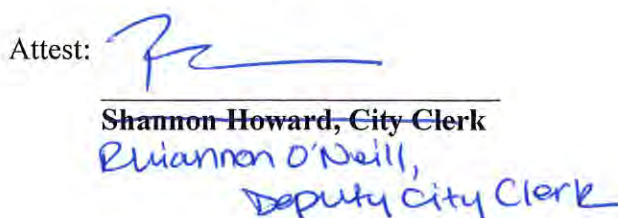 Attest:
Shannon Howard, City Clerk
Rhiannon O'Neill,
Deputy City Clerk